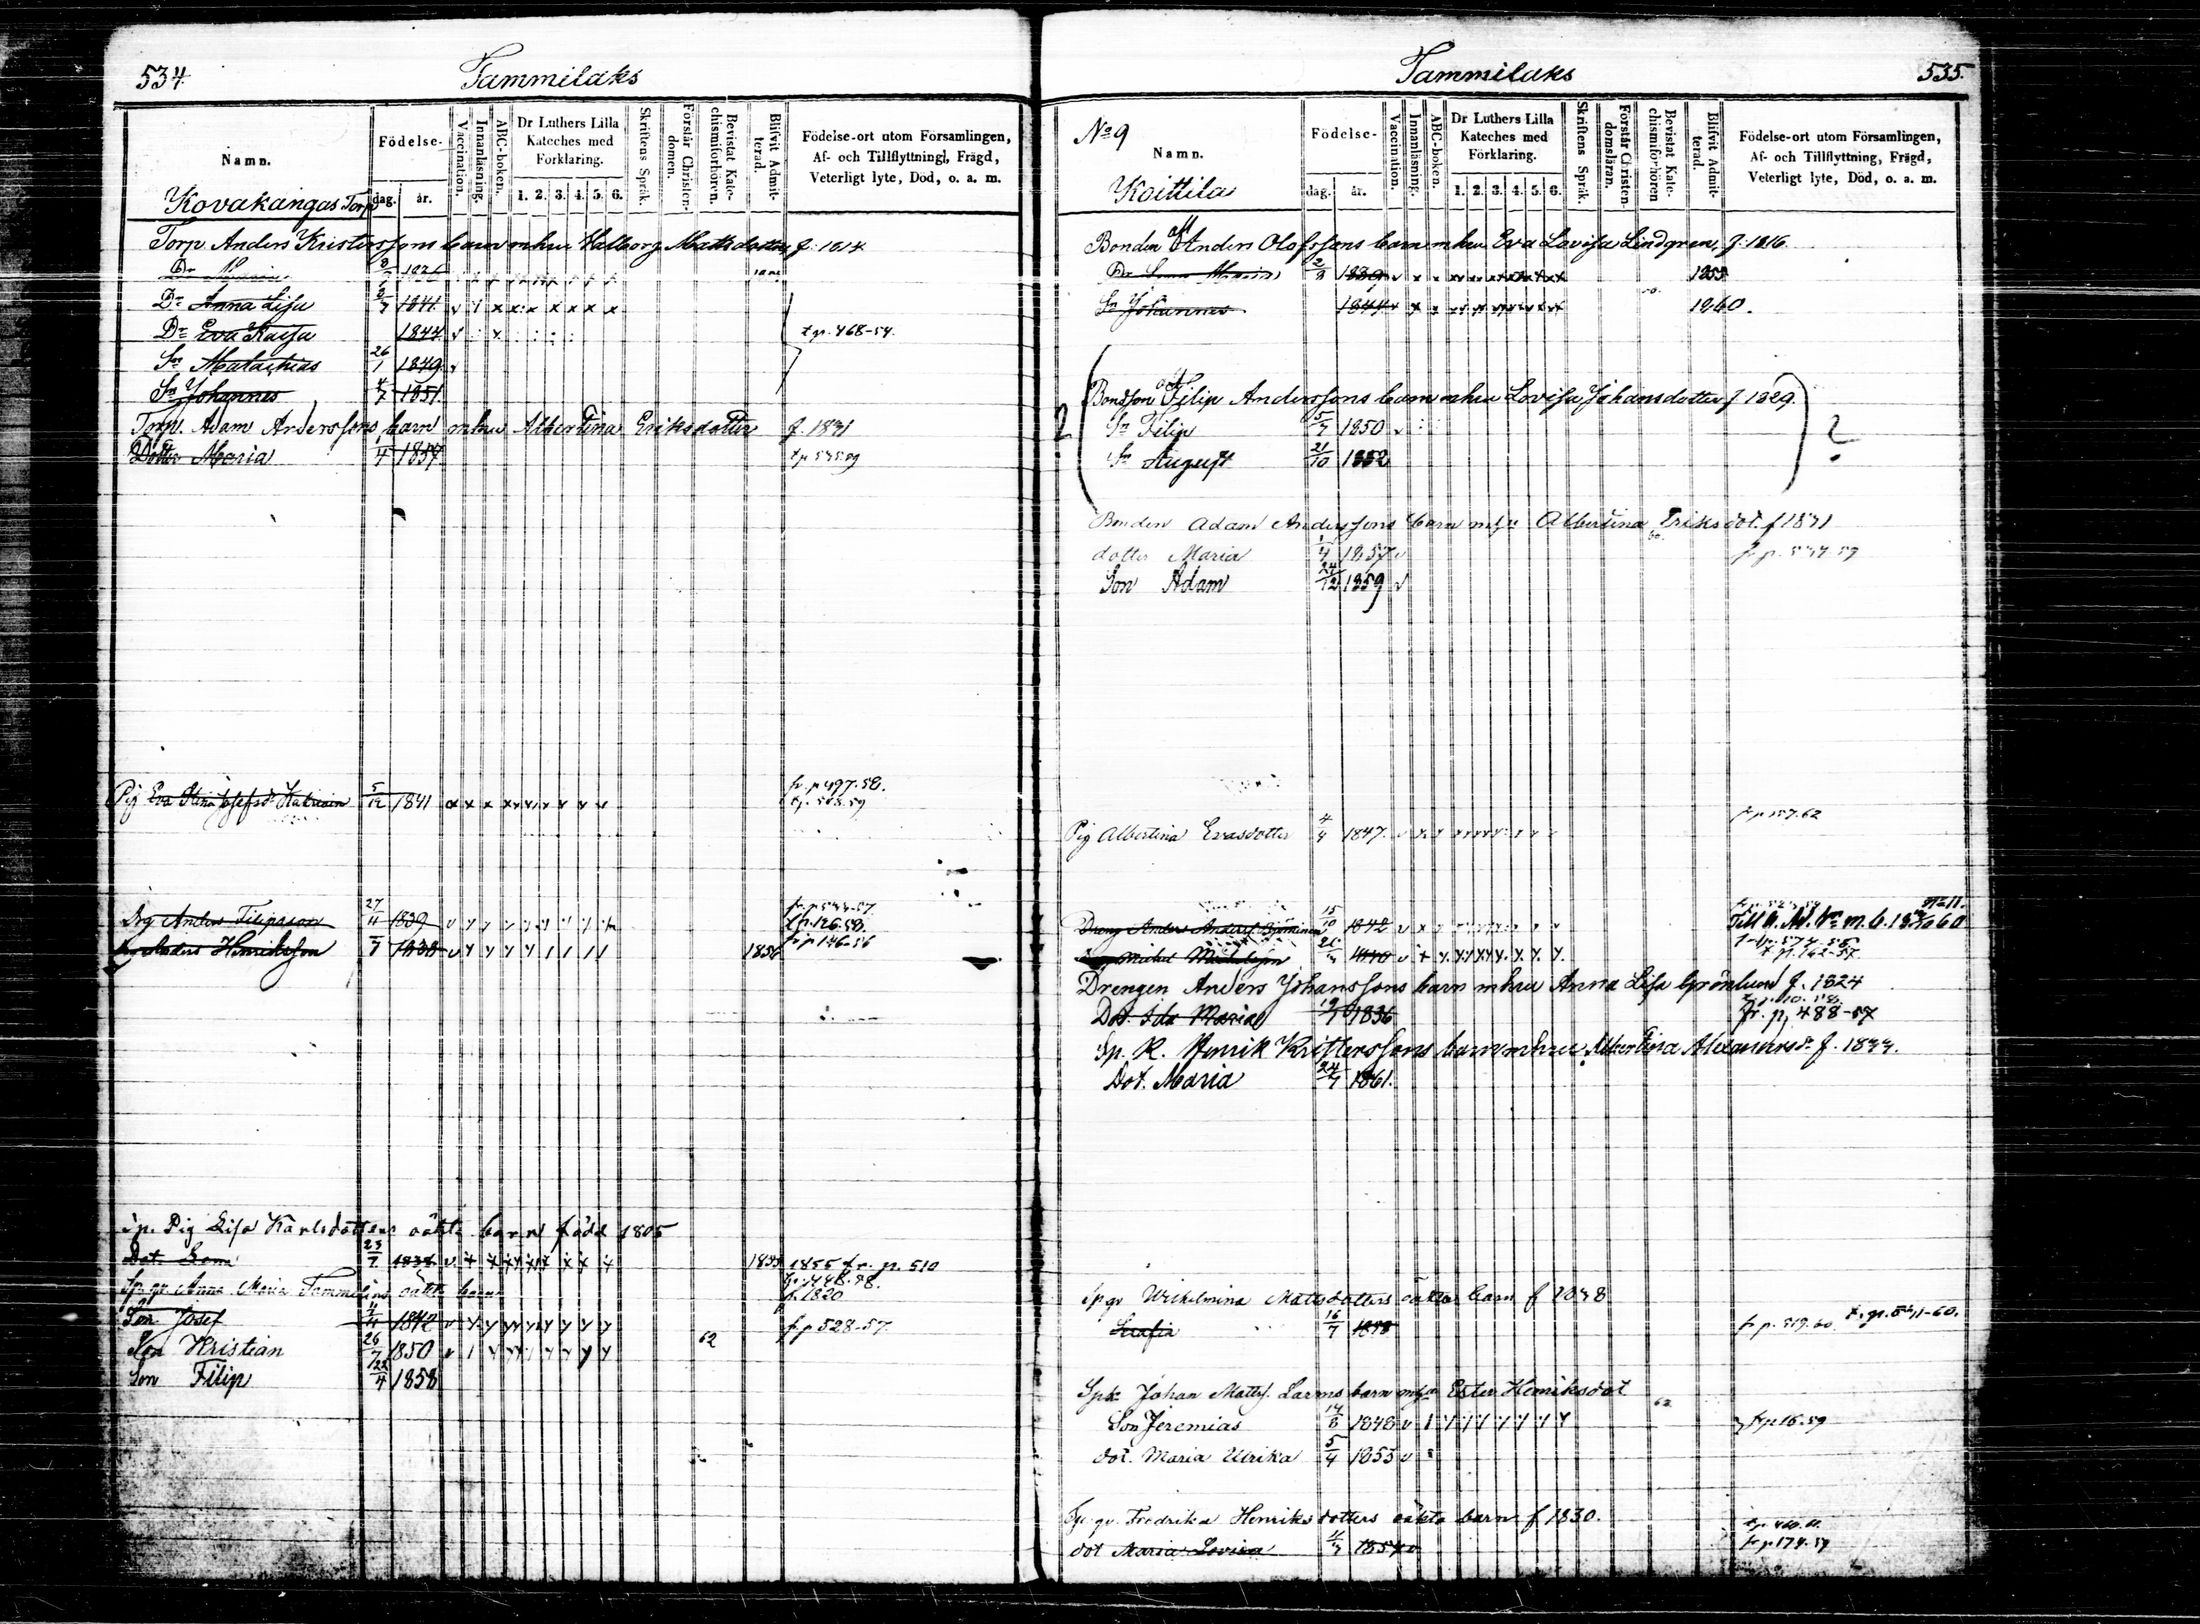 534.
Tammilaks
Namn.
Födelse-
dag. år.
Vaccination.
Innanläsning.
ABC-boken.
Dr Luthers Lilla Kateches med Förklaring.
1. 2. 3. 4. 5. 6.
Skriftens Språk.
Förstår Christen-domen.
Bevistat Kate-chismiförhören.
Blifvit Admit-terad.
Födelse-ort utom Församlingen,
Af- och Tillflyttningl, Frägd,
Veterligt lyte, Död, o. a. m.
Kovakangas Torp
Torp. Anders Kristerssons barn m hu Walborg Mattsdotter f. 1814
Dr Maria 1836
Dr Anna Lisa 1841
Dr Eva Kaisa 1844 t p. 468-54
Sn Malachias 26/1 1849
Sn Johannes 4/7 1851
Torp. Adam Anderssons barn m hu Albertina Eriksdotter f. 1831
Dotter Maria 1/4 1857 t p 535.59
fr. p 497.58.
Pig Eva Stina Josefsdr 5/12 1841
Drg Anders Filipsson 27/11 1839 t p. 126.58.
Anders Henriksson 1838 1856 fr p 146-56
ip. Pig Lisa Karlsdotters oäkta barn född 1805
Dot. Lena 23/7 1838 1855 1855 fr. p. 510
Sp. qv. Anna Maria Tammelins oäkta barn f. 1820
Son Josef 1842 fr p 528-57.
Son Kristian 26/7 1850 62
Son Filip 22/4 1858
Tammilaks
535.
No 9
Namn.
Födelse-
dag. år.
Vaccination.
Innanläsning.
ABC-boken.
Dr Luthers Lilla Kateches med Förklaring.
1. 2. 3. 4. 5. 6.
Skriftens Språk.
Förstår Christen-domsläran.
Bevistat Kate-chismiförhören
Blifvit Admit-terad.
Födelse-ort utom Församlingen,
Af- och Tillflyttning, Frägd,
Veterligt lyte, Död, o. a. m.
Koittila
Bonden Anders Olofssons barn m hu Eva Lovisa Lindgren, f. 1816
Dr Maria 2/8 1839 1855
Sn Johannes 1844 1860.
Bondson Filip Anderssons barn m hu Lovisa Johansdotter f 1829.
Sn Filip 5/7 1850
Sn August 21/10 1852
? ?
Bonden Adam Anderssons barn m h Albertina Eriksdot. f 1831
dotter Maria 1/4 1857 fr p. 534 59
Son Adam 24/12 1859
Pig Albertina Evasdotter 4/4 1847. fr p 157.62
Dreng Anders Andersf 15/10 1842
Michel Michelsson 1840 t p. 162-57.
Drengen Anders Johanssons barn m hu Anna Lisa Grönlund f. 1824
Dot. Ida Maria 19/7 1856 fr. p. 488-57
Sp. K. Henrik Kristerssons barn m hu Albertina Alexandersd. f. 1833.
Dot. Maria 24/7 1861.
Sp qv Wilhelmina Mattsdotters oäkta barn f 1838
Serafia 16/7 1858 fr p. 519.60. t. p. 541-60.
Spk Johan Mattsf. Larms barn m h Ester Henriksdot 62
Son Jeremias 14/8 1848 fr p 16.59
dot. Maria Ulrika 5/4 1853
Sp. qv. Fredrika Henriksdotters oäkta barn f 1830.
dot Maria Lovisa 1857 fr p 174.59